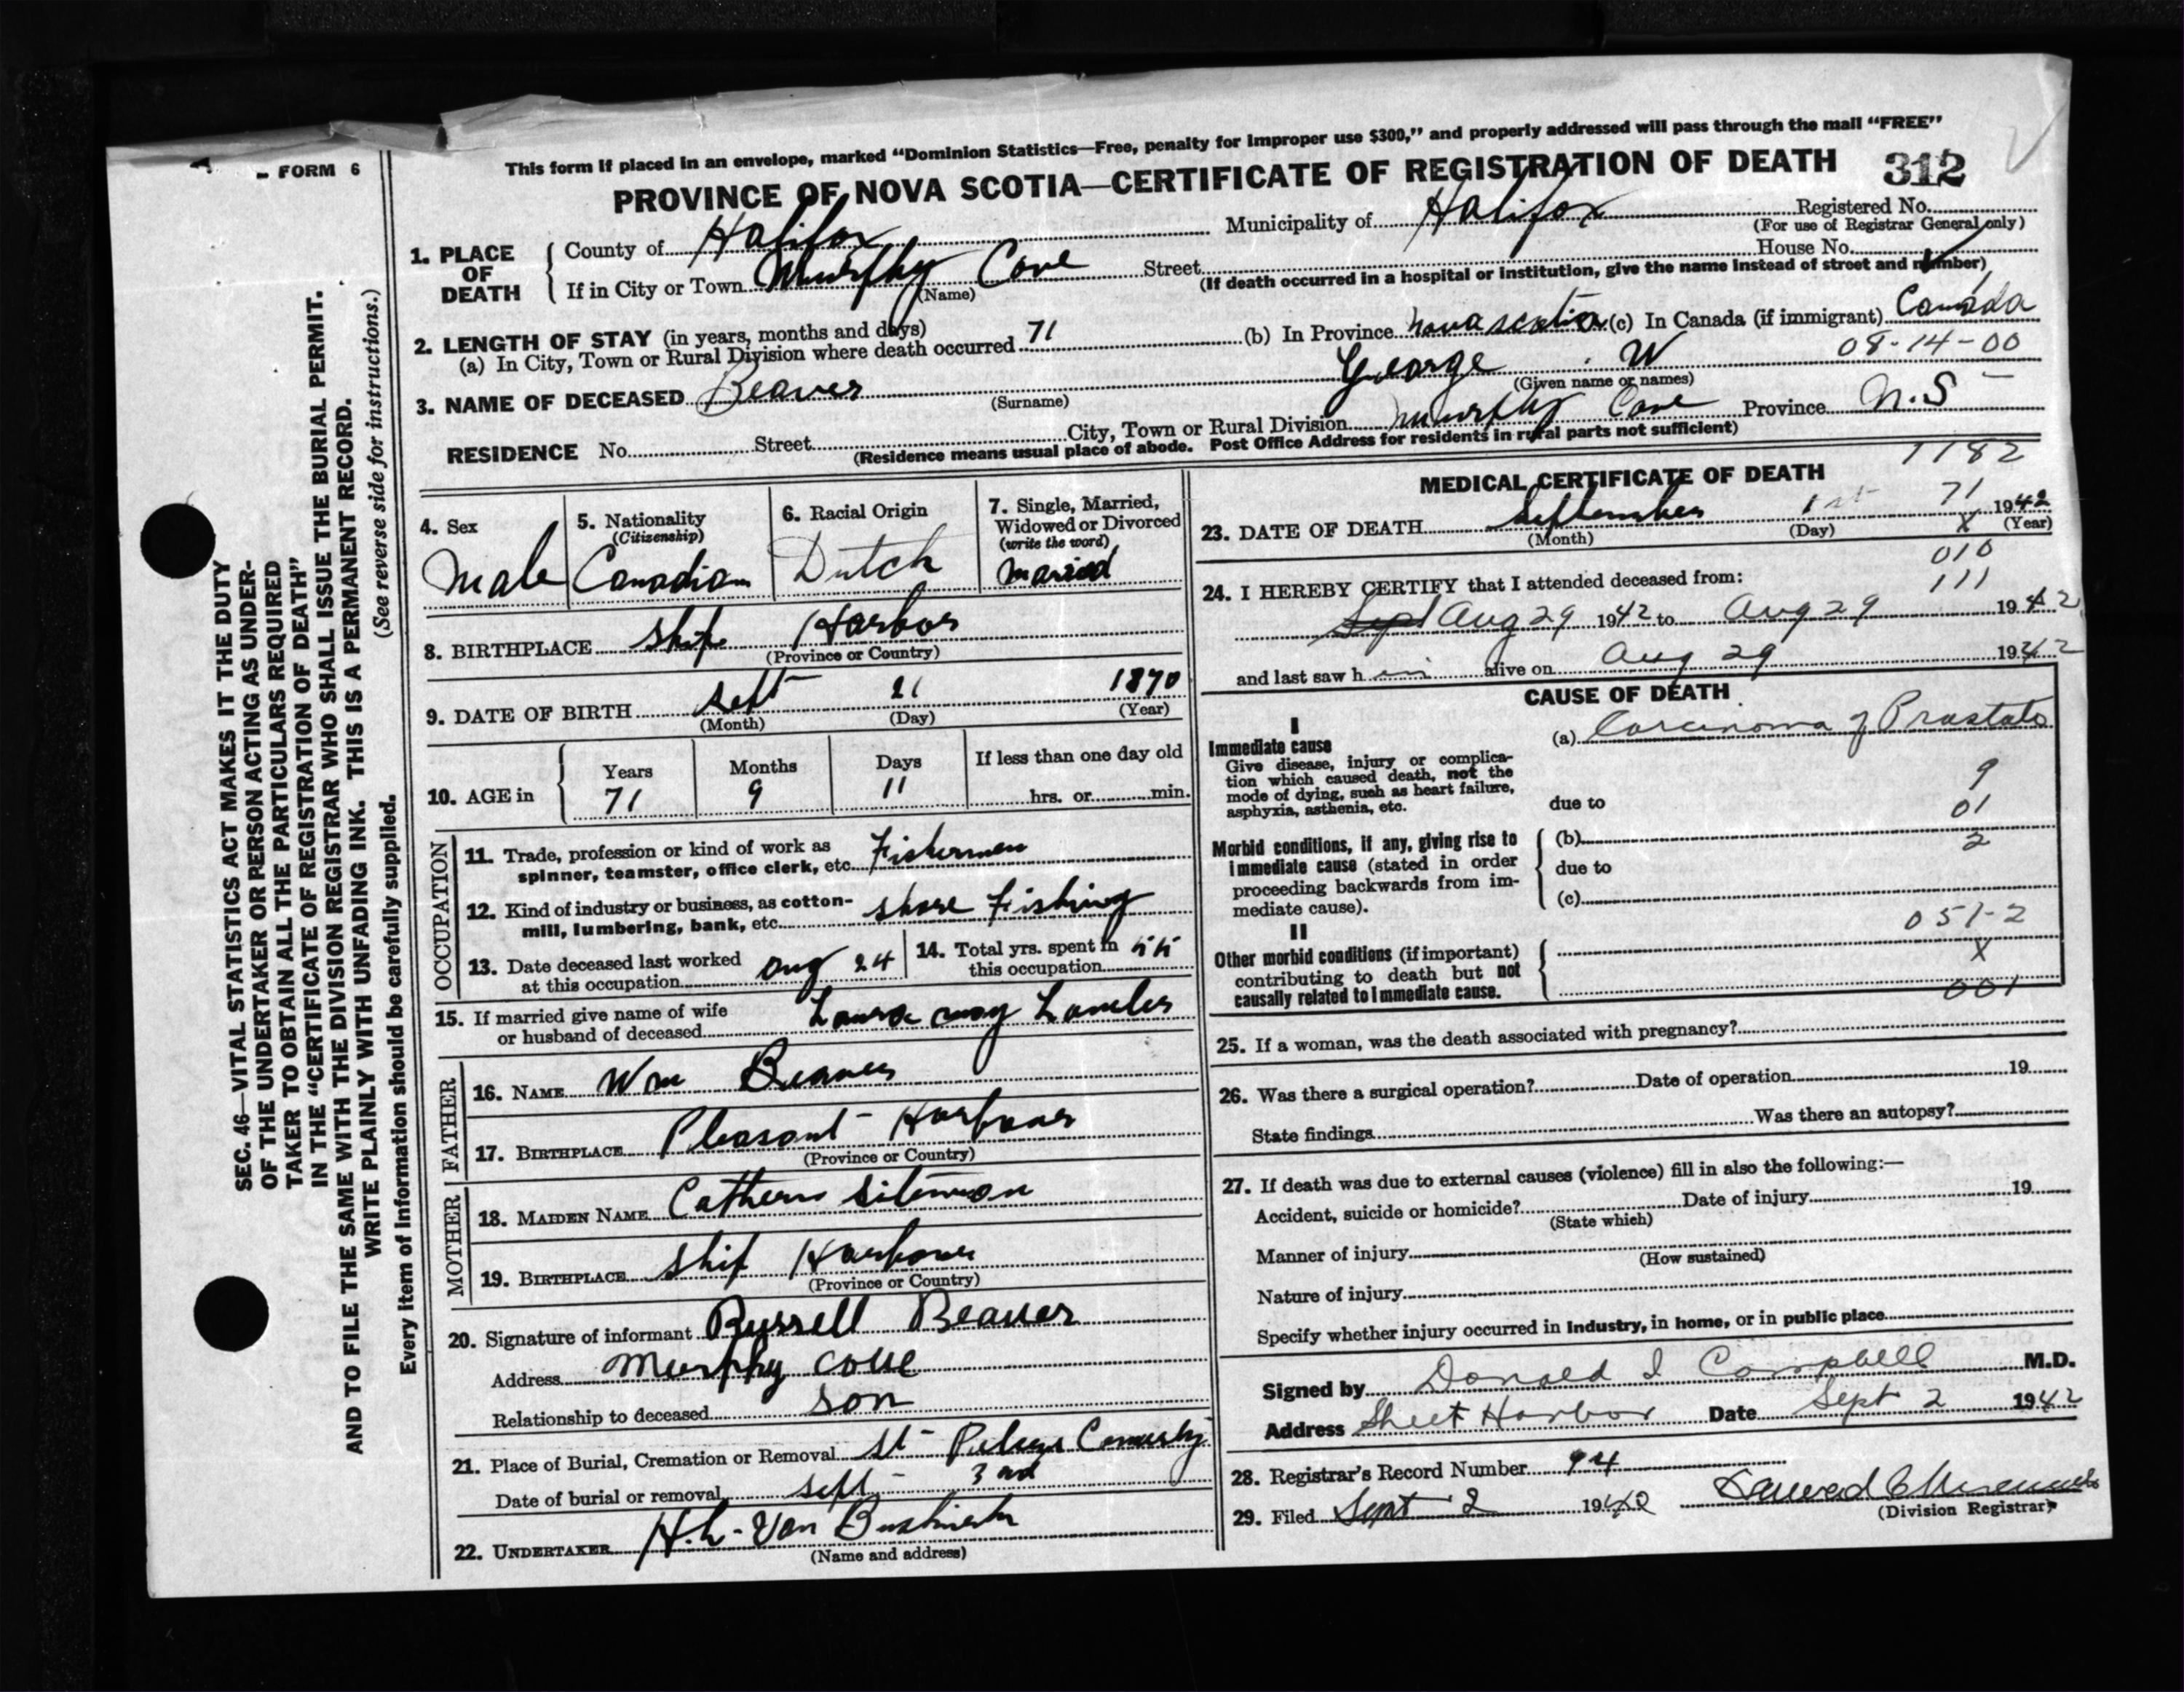 FORM 6
This form if placed in an envelope, marked “Dominion Statistics—Free, penalty for improper use $300,” and properly addressed will pass through the mail “FREE”
PROVINCE OF NOVA SCOTIA—CERTIFICATE OF REGISTRATION OF DEATH 312
SEC. 46—VITAL STATISTICS ACT MAKES IT THE DUTY
OF THE UNDERTAKER OR PERSON ACTING AS UNDER-
TAKER TO OBTAIN ALL THE PARTICULARS REQUIRED
IN THE “CERTIFICATE OF REGISTRATION OF DEATH”
AND TO FILE THE SAME WITH THE DIVISION REGISTRAR WHO SHALL ISSUE THE BURIAL PERMIT.
WRITE PLAINLY WITH UNFADING INK. THIS IS A PERMANENT RECORD.
(See reverse side for instructions.)
Every item of information should be carefully supplied.
1. PLACE OF DEATH
County of Halifax Municipality of Halifax Registered No.
(For use of Registrar General only)
If in City or Town Murphy Cove Street House No.
(Name) (If death occurred in a hospital or institution, give the name instead of street and number)
2. LENGTH OF STAY (in years, months and days)
(a) In City, Town or Rural Division where death occurred 71 (b) In Province Nova Scotia (c) In Canada (if immigrant) Canada
08-14-00
3. NAME OF DECEASED Beaver George W
(Surname) (Given name or names)
RESIDENCE No. Street City, Town or Rural Division Murphy Cove Province N.S
(Residence means usual place of abode. Post Office Address for residents in rural parts not sufficient)
4. Sex
Male
5. Nationality
(Citizenship)
Canadian
6. Racial Origin
Dutch
7. Single, Married,
Widowed or Divorced
(write the word)
Married
8. BIRTHPLACE Ship Harbor
(Province or Country)
9. DATE OF BIRTH Sept 21 1870
(Month) (Day) (Year)
10. AGE in Years Months Days If less than one day old
71 9 11 hrs. or min.
OCCUPATION
11. Trade, profession or kind of work as
spinner, teamster, office clerk, etc. Fishermen
12. Kind of industry or business, as cotton-
mill, lumbering, bank, etc. Shore Fishing
13. Date deceased last worked
at this occupation Aug 24
14. Total yrs. spent in
this occupation 55
15. If married give name of wife
or husband of deceased Laura may
FATHER
16. NAME Wm Beaver
17. BIRTHPLACE Pleasant Harbour
(Province or Country)
MOTHER
18. MAIDEN NAME Cathern Siteman
19. BIRTHPLACE Ship Harbour
(Province or Country)
20. Signature of informant Russell Beaver
Address Murphy Cove
Relationship to deceased Son
21. Place of Burial, Cremation or Removal St
Date of burial or removal Sept 3rd
22. UNDERTAKER H.L- Van
(Name and address)
1182
MEDICAL CERTIFICATE OF DEATH
71
23. DATE OF DEATH September 1st 1942
(Month) (Day) X (Year)
010
111
24. I HEREBY CERTIFY that I attended deceased from:
Sept Aug 29 1942 to Aug 29 1942
and last saw h im alive on Aug 29 1942
CAUSE OF DEATH
I
Immediate cause
Give disease, injury or complica-
tion which caused death, not the
mode of dying, such as heart failure,
asphyxia, asthenia, etc.
(a) Carcinoma of Prostate
9
due to
01
Morbid conditions, if any, giving rise to
immediate cause (stated in order
proceeding backwards from im-
mediate cause).
(b)
2
due to
(c)
051-2
II
Other morbid conditions (if important)
contributing to death but not
causally related to immediate cause.
X
001
25. If a woman, was the death associated with pregnancy?
26. Was there a surgical operation? Date of operation 19
State findings Was there an autopsy?
27. If death was due to external causes (violence) fill in also the following:—
Accident, suicide or homicide? Date of injury 19
(State which)
Manner of injury
(How sustained)
Nature of injury
Specify whether injury occurred in industry, in home, or in public place
Signed by Donald I Campbell M.D.
Address Sheet Harbor Date Sept 2 1942
28. Registrar's Record Number 94
29. Filed Sept 2 1942
(Division Registrar)